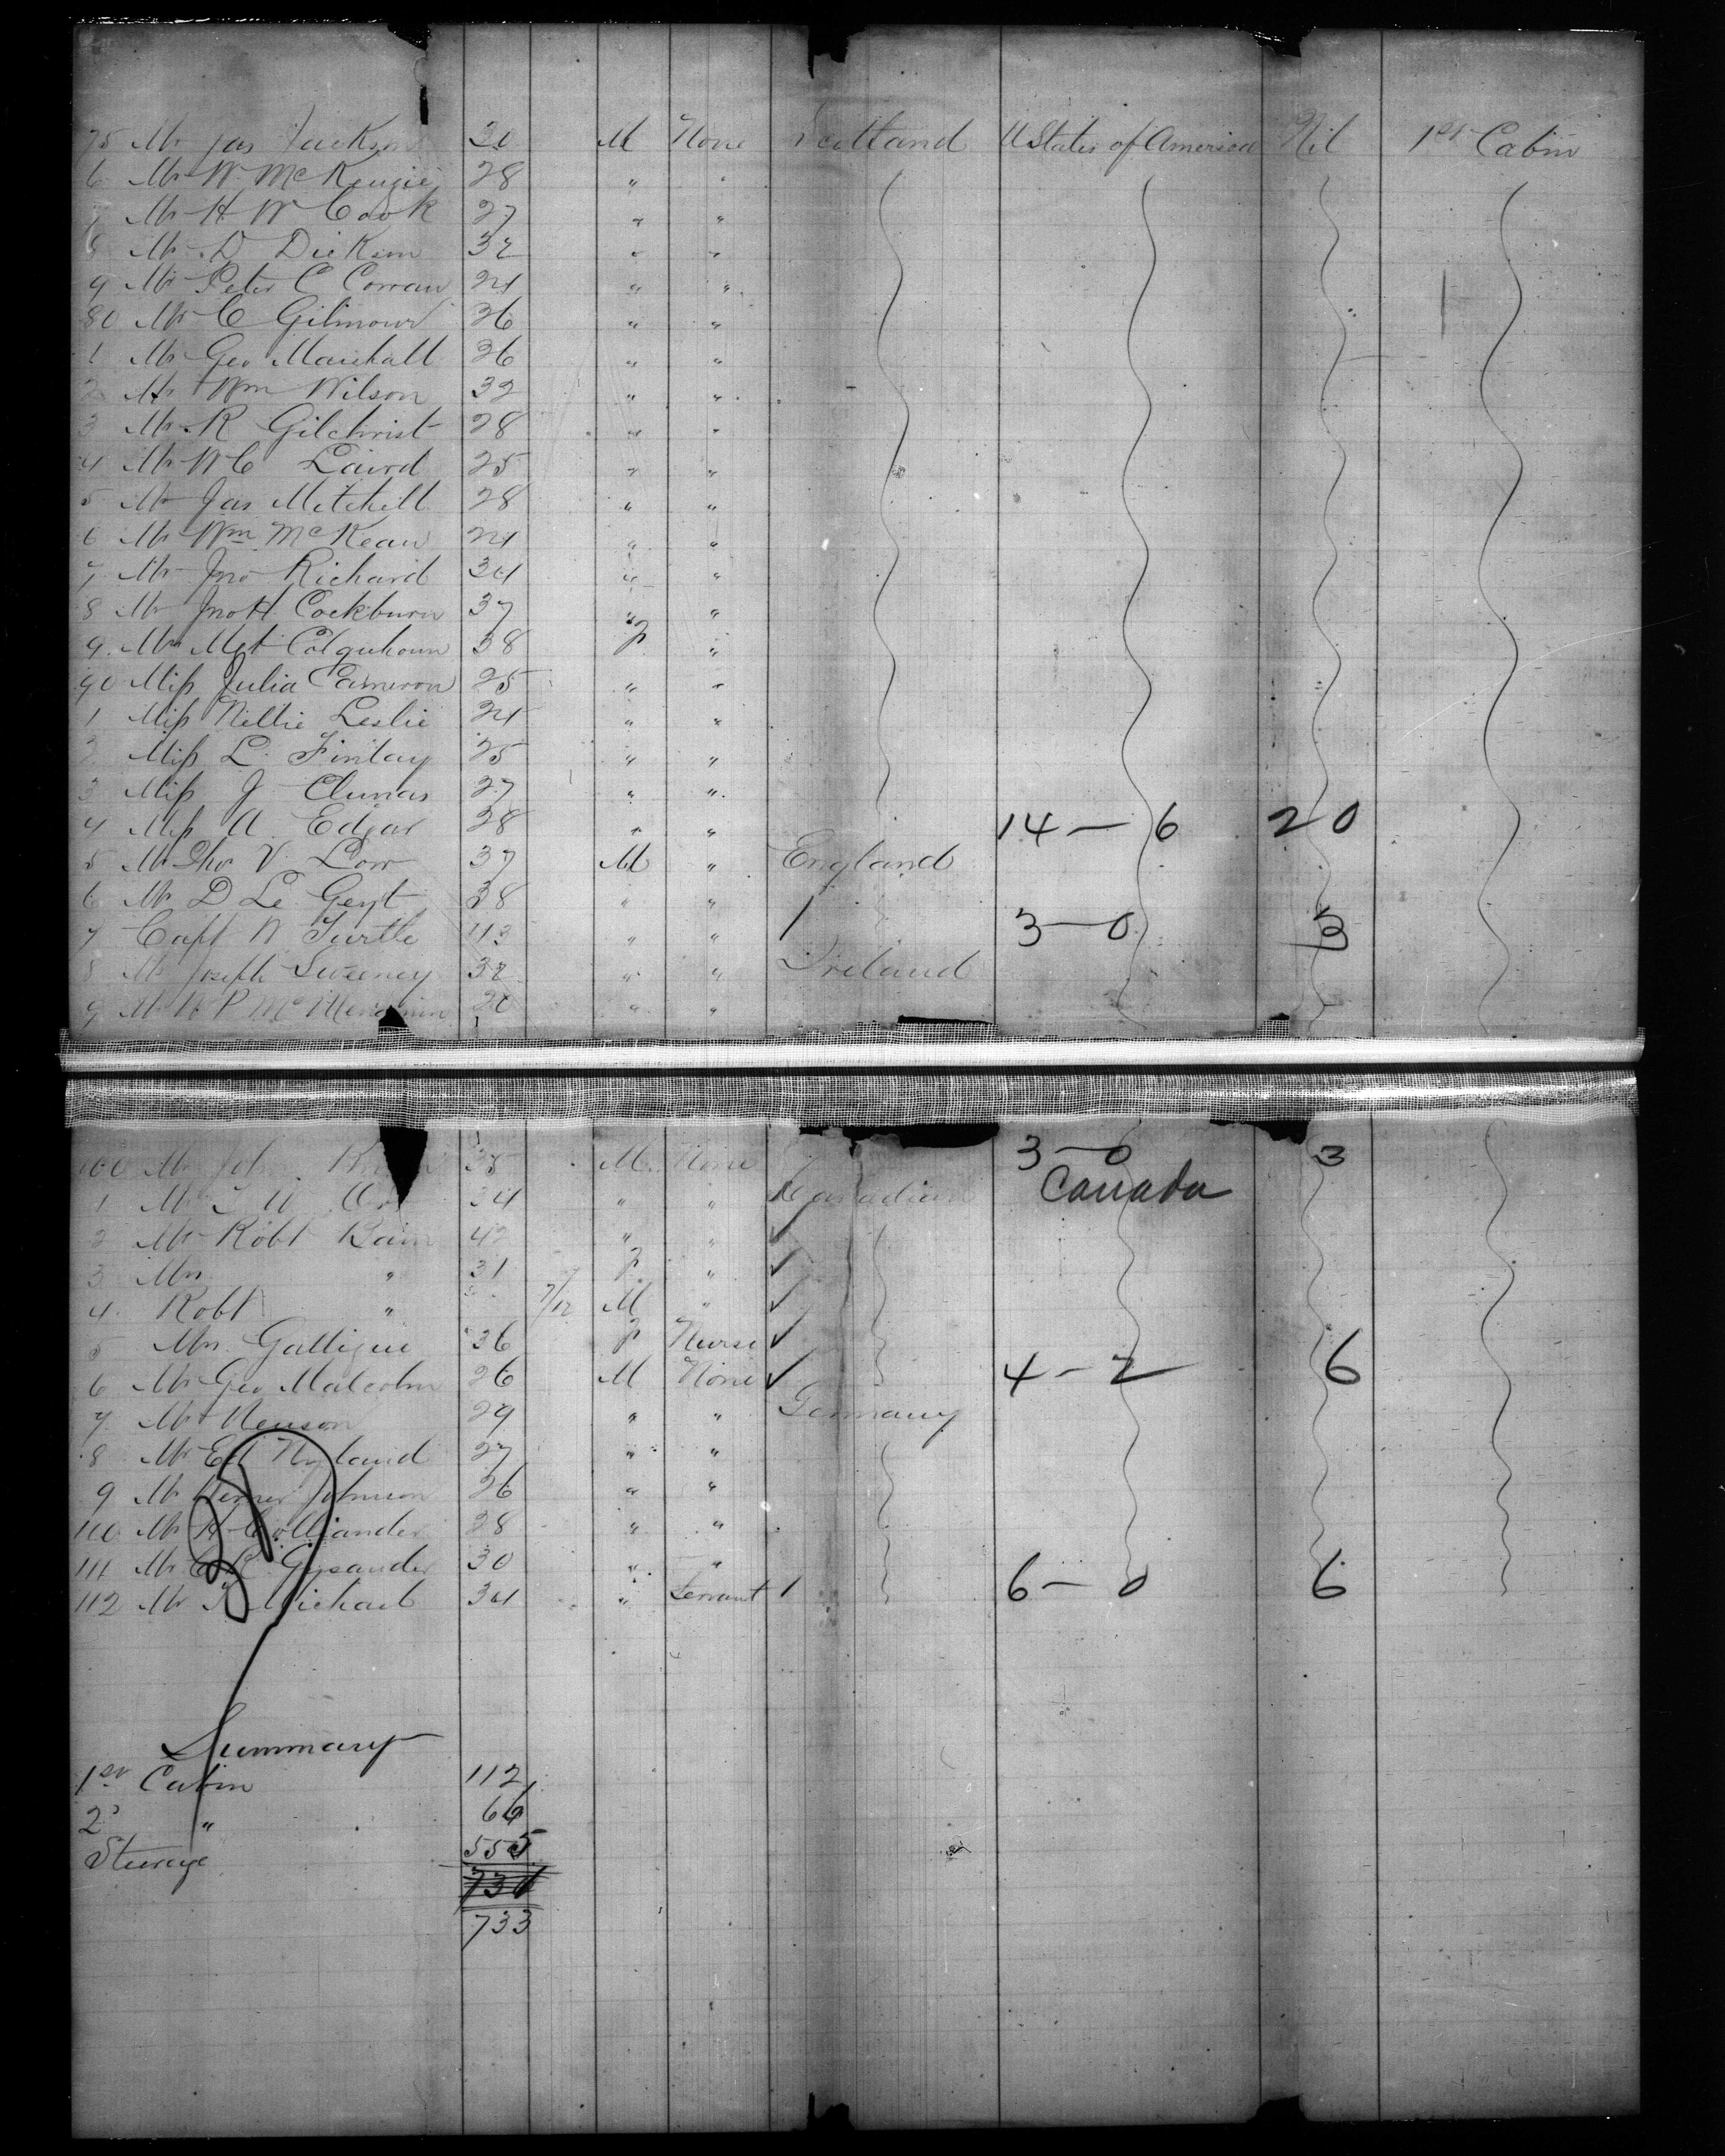 75 Mr Jas Jackson 30 M None Scotland U States of America Nil 1st Cabin
6 Mr W McKenzie 28 " "
7 Mr H W Cook 27 " "
8 Mr D Dickson 32 " "
9 Mr Peter C Corran 24 " "
80 Mr C Gilmour 36 " "
1 Mr Geo Marshall 36 " "
2 Mr Wm Wilson 32 " "
3 Mr R Gilchrist 28 " "
4 Mr W C Laird 25 " "
5 Mr Jas Mitchell 28 " "
6 Mr Wm McKean 24 " "
7 Mr Jno Richard 34 " "
8 Mr Jno H Cockburn 37 " "
9 Mrs Mgt Colquhoun 38 F "
90 Miss Julia Cameron 25 " "
1 Miss Nellie Leslie 24 " "
2 Miss L. Finlay 25 " "
3 Miss J Clunas 27 " "
4 Miss A. Edgar 28 " " 14 — 6 20
5 Mr Thos V. Low 37 M " England
6 Mr D Le Geyt 38 " "
7 Capt N Turtle 43 " " / 3 — 0 3
8 Mr Joseph Sweeney 32 " " Ireland
9 Mr W P " "
100 Mr John M None 3 — 0 3
1 Mr 34 " " Canadian Canada
2 Mr Robt Bain 42 " " ✓
3 Mrs " 31 F " ✓
4 Robt " 7/12 M " ✓
5 Mrs Galligue 36 F Nurse ✓
6 Mr Geo Malcolm 26 M None ✓ 4 — 2 6
7 Mr Neuson 29 " " Germany
8 Mr Ed Nyland 27 " "
9 Mr Johnson 26 " "
110 Mr H Collander 28 " "
111 Mr 30 " "
112 Mr Michael 34 " Servant / 6 — 0 6
Summary
1st Cabin 112
2d " 66
Steerage 555
731
733